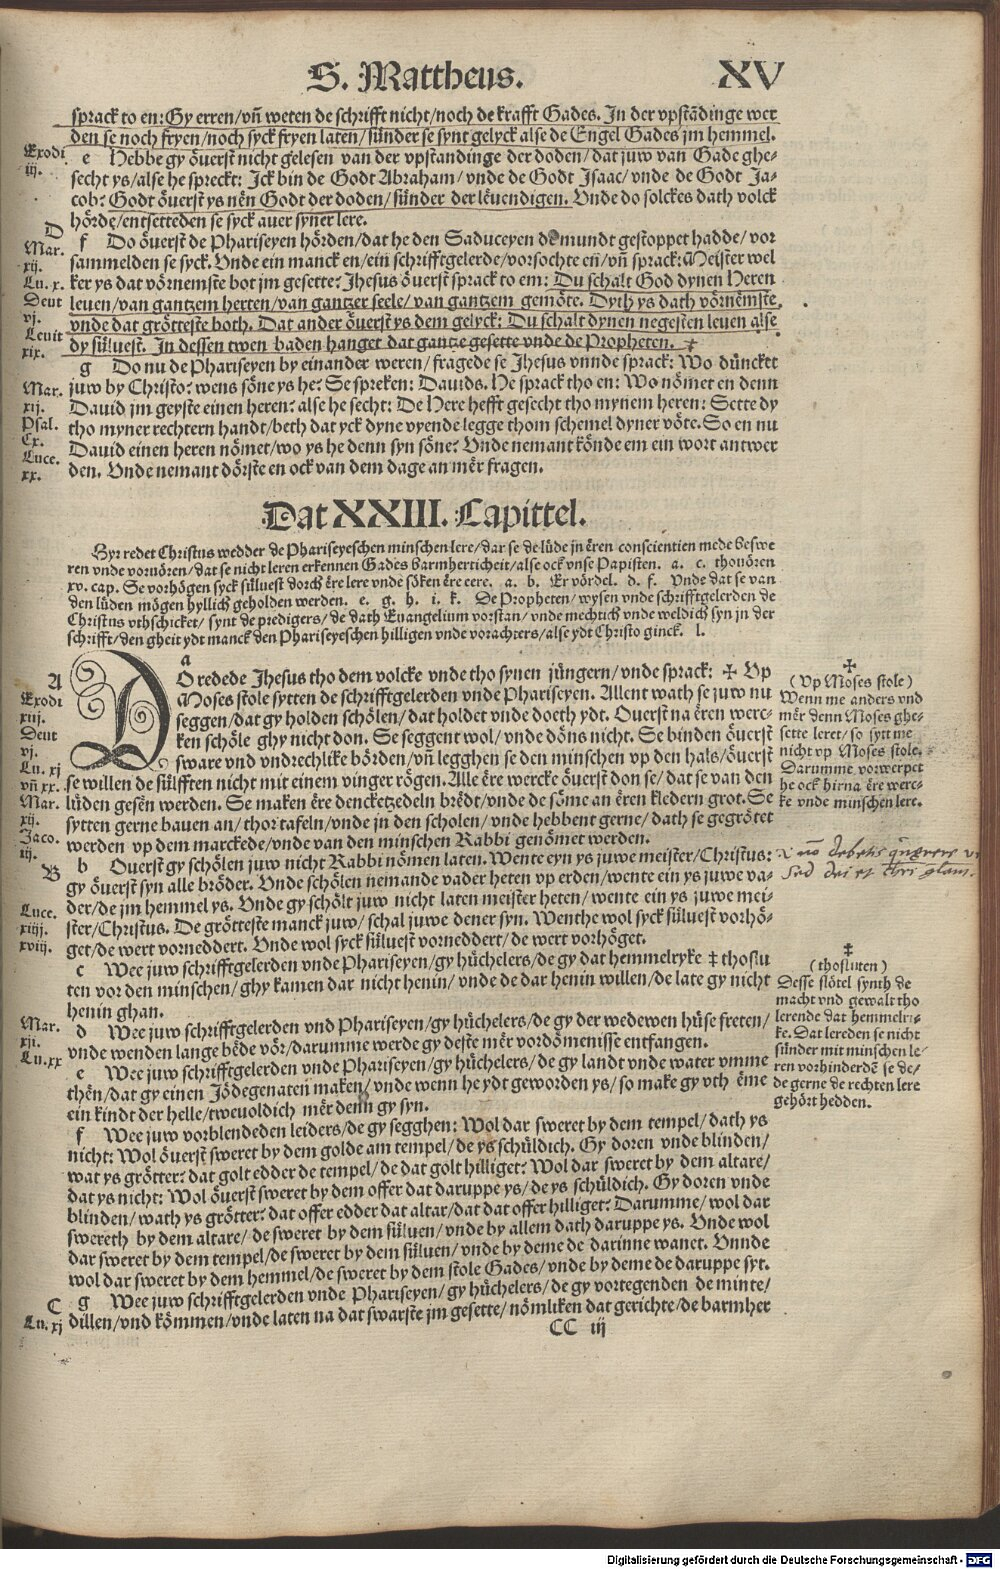 S. Mattheus. XV
sprack to en: Gy erren/vñ weten de schrifft nicht/noch de krafft Gades. In der vpstãdinge wer
den se noch fryen/noch syck fryen laten/sünder se synt gelyck alse de Engel Gades jm hemmel.
e Hebbe gy öuerst nicht gelesen van der vpstandinge der doden/dat juw van Gade ghe-
secht ys/alse he spreckt: Ick bin de Godt Abraham/vnde de Godt Isaac/vnde de Godt Ja-
cob? Godt öuerst ys nẽn Godt der doden/sünder der lëuendigen. Vnde do solckes dath volck
hörde/entsetteden se syck auer syner lere.
f Do öuerst de Phariseyen hörden/dat he den Saduceyen de mundt gestoppet hadde/vor
sammelden se syck. Vnde ein manck en/ein schrifftgelerde/vorsochte en/vñ sprack: Meister wel
ker ys dat vörnemste bot jm gesette? Jhesus öuerst sprack to em: Du schalt God dynen Heren
leuen/van gantzem herten/van gantzer seele/van gantzem gemöte. Dyth ys dath vörnëmste,
vnde dat grötteste both. Dat ander öuerst ys dem gelyck: Du schalt dynen negesten leuen alse
dy süluest. In dessen twen baden hanget dat gantze gesette vnde de Propheten.
g Do nu de Phariseyen by einander weren/fragede se Jhesus vnnde sprack: Wo düncket
juw by Christo? wens söne ys he? Se spreken: Dauids. He sprack tho en: Wo nömet en denn
Dauid jm geyste einen heren? alse he secht: De Here hefft gesecht tho mynem heren: Sette dy
tho myner rechtern handt/beth dat yck dyne vyende legge thom schemel dyner vöte. So en nu
Dauid einen heren nömet/wo ys he denn syn söne? Vnde nemant könde em ein wort antwer
den. Vnde nemant dörste en ock van dem dage an mër fragen.
Exodi
iij.
D
Mar.
xij.
Lu. x.
Deut
vj.
Leuit
xix.
Mar.
xij.
Psal.
Cx.
Luce.
xx.
Dat XXIII. Capittel.
Hyr redet Christus wedder de Phariseyeschen minschen lere/dar se de lüde jn ëren conscientien mede beswe
ren vnde voruören/dat se nicht leren erkennen Gades barmherticheit/alse ock vnse Papisten. a. c. thouören
xv. cap. Se vorhögen syck süluest dorch ëre lere vnde söken ëre eere. a. b. Er vördel. d. f. Vnde dat se van
den lüden mögen hyllich geholden werden. e. g. h. i. k. De Propheten/wysen vnde schrifftgelerden de
Christus vthschicket/synt de predigers/de dath Euangelium vorstan/vnde mechtich vnde weldich syn jn der
schrifft/den gheit ydt manck den Phariseyeschen hilligen vnde vorachters/alse ydt Christo ginck. l.
a
DO redede Jhesus tho dem volcke vnde tho synen jüngern/vnde sprack: ✠ Vp
Moses stole sytten de schrifftgelerden vnde Phariseyen. Allent wath se juw nu
seggen/dat gy holden schölen/dat holdet vnde doeth ydt. Ouerst na ëren werc-
ken schöle ghy nicht don. Se seggent wol/vnde döns nicht. Se binden öuerst
sware vnd vndrechlike börden/vñ legghen se den minschen vp den hals/öuerst
se willen de süllfften nicht mit einem vinger rögen. Alle ëre wercke öuerst don se/dat se van den
lüden gesën werden. Se maken ëre dencketzedeln brëdt/vnde de söme an ëren kledern grot. Se
sytten gerne bauen an/thor tafeln/vnde jn den scholen/vnde hebbent gerne/dath se gegrötet
werden vp dem marckede/vnde van den minschen Rabbi genömet werden.
b Ouerst gy schölen juw nicht Rabbi nömen laten. Wente eyn ys juwe meister/Christus:
gy öuerst syn alle bröder. Vnde schölen nemande vader heten vp erden/wente ein ys juwe va-
der/de jm hemmel ys. Vnde gy schölt juw nicht laten meister heten/wente ein ys juwe mei-
ster/Christus. De grötteste manck juw/schal juwe dener syn. Wenthe wol syck süluest vorhö-
get/de wert vorneddert. Vnde wol syck süluest vorneddert/de wert vorhöget.
c Wee juw schrifftgelerden vnde Phariseyen/gy hüchelers/de gy dat hemmelryke ‡ thoslu
ten vor den minschen/ghy kamen dar nicht henin/vnde de dar henin willen/de late gy nicht
henin ghan.
d Wee juw schrifftgelerden vnd Phariseyen/gy hüchelers/de gy der wedewen hüse freten/
vnde wenden lange bëde vör/darumme werde gy deste mër vordömenisse entfangen.
e Wee juw schrifftgelerden vnde Phariseyen/gy hüchelers/de gy landt vnde water vmme
thën/dat gy einen Jödegenaten maken/vnde wenn he ydt geworden ys/so make gy vth ëme
ein kindt der helle/twevoldich mër denn gy syn.
f Wee juw vorblendeden leiders/de gy segghen: Wol dar sweret by dem tempel/dath ys
nicht: Wol öuerst sweret by dem golde am tempel/de ys schüldich. Gy doren vnde blinden/
wat ys grötter? dat golt edder de tempel/de dat golt hilliget? Wol dar sweret by dem altare/
dat ys nicht: Wol öuerst sweret by dem offer dat daruppe ys/de ys schüldich. Gy doren vnde
blinden/wath ys grötter? dat offer edder dat altar/dat dat offer hilliget? Darumme/wol dar
swereth by dem altare/de sweret by dem süluen/vnde by allem dath daruppe ys. Vnde wol
dar sweret by dem tempel/de sweret by dem süluen/vnde by deme de darinne wanet. Vnnde
wol dar sweret by dem hemmel/de sweret by dem stole Gades/vnde by deme de daruppe syt.
g Wee juw schrifftgelerden vnde Phariseyen/gy hüchelers/de gy vortegenden de minte/
dillen/vnd kömmen/vnde laten na dat swarste jm gesette/nömliken dat gerichte/de barmher
CC iij
A
Exodi
xiij.
Deut
vj.
Lu. xj
vñ xx.
Mar.
xij.
Jaco.
iij.
B
Luce.
xiiij.
xviij.
Mar.
xij.
Lu. xx
C
Lu. xj
✠
(Vp Moses stole)
Wenn me anders vnd
mër denn Moses ghe-
sette leret/so sytt me
nicht vp Moses stole.
Darumme vorwerpet
he ock hirna ëre werc-
ke vnde minschen lere.
‡
(thosluten)
Desse slötel synth de
macht vnd gewalt tho
lerende dat hemmelri-
ke. Dat lereden se nicht
sünder mit minschen le-
ren vorhinderdẽ se de/
de gerne de rechten lere
gehört hedden.
Digitalisierung gefördert durch die Deutsche Forschungsgemeinschaft - DFG